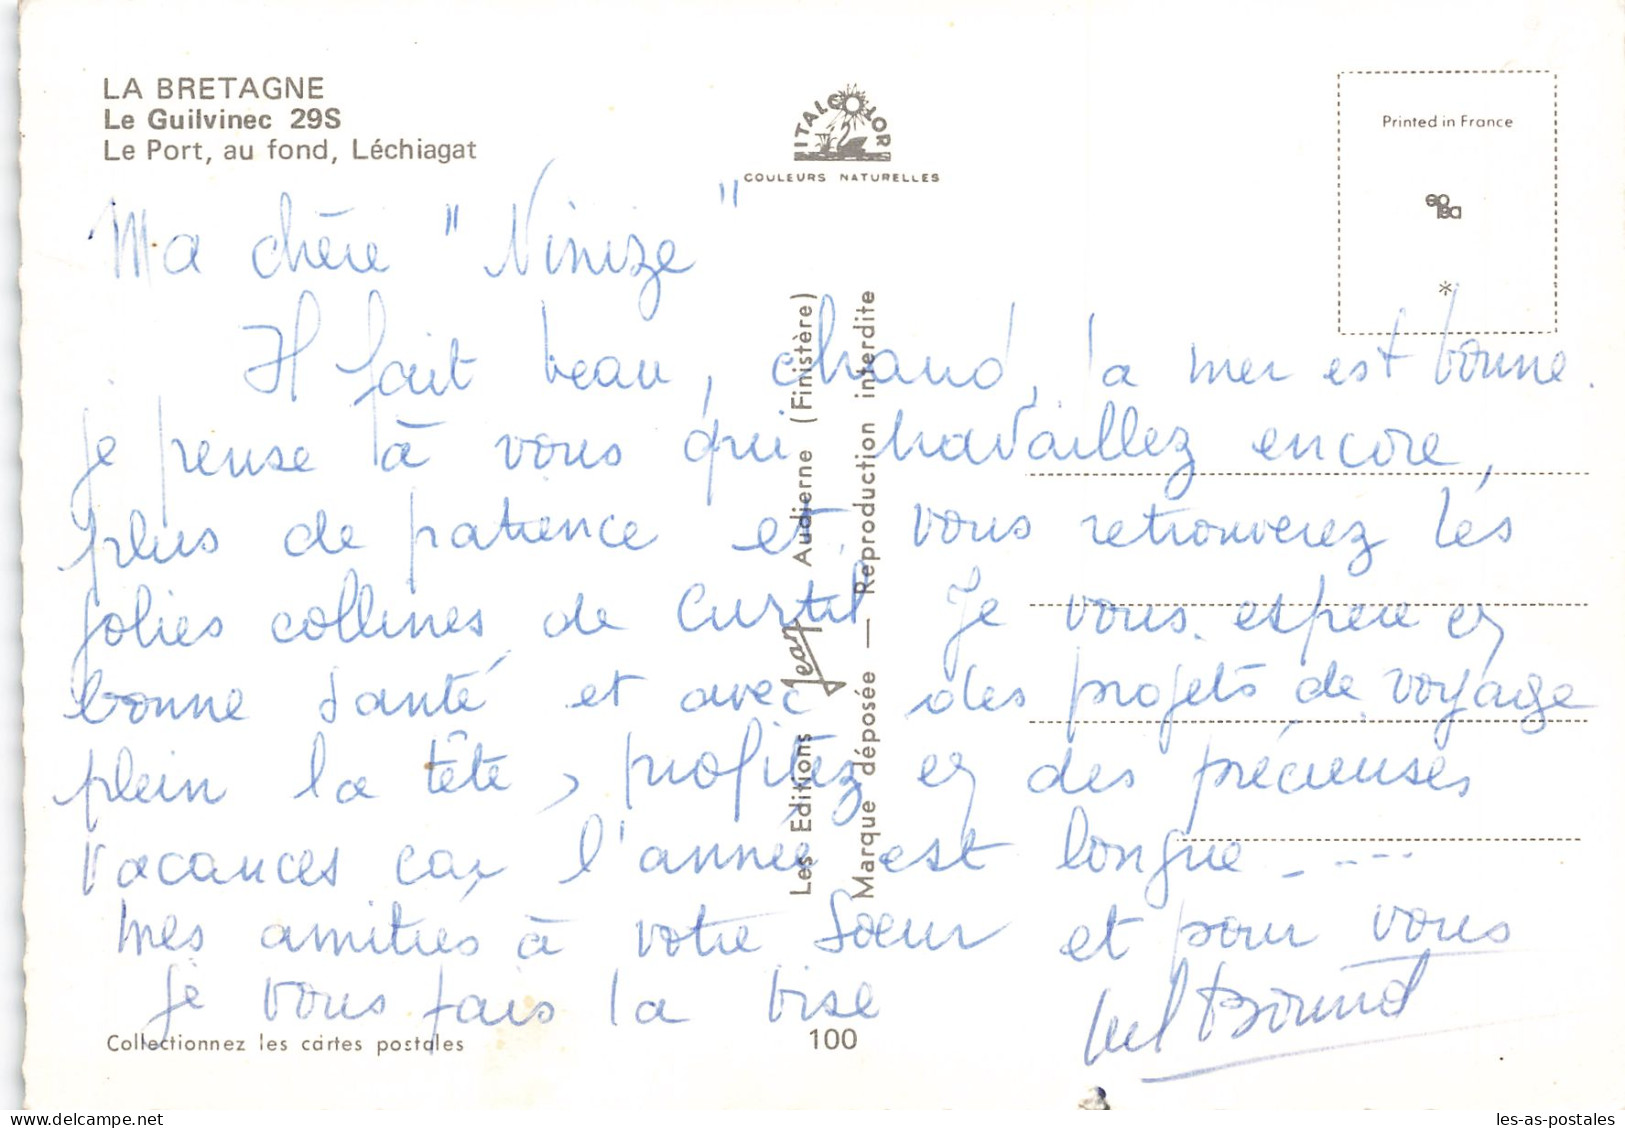 LA BRETAGNE
Le Guilvinec 29S
Le Port, au fond, Léchiagat
ITALCOLOR
COULEURS NATURELLES
Printed in France
*
Ma chère "Ninize"
Il fait beau, chaud, la mer est bonne.
je pense à vous qui travaillez encore,
plus de patience et vous retrouverez les
jolies collines de Curtil Je vous espère en
bonne santé et avec des projets de voyage
plein la tête, profitez en des précieuses
vacances car l'année est longue ----
mes amitiés à votre soeur et pour vous
je vous fais la bise
Les Editions Jean Audierne (Finistère)
Marque déposée — Reproduction interdite
Collectionnez les cartes postales
100
les-as-postales